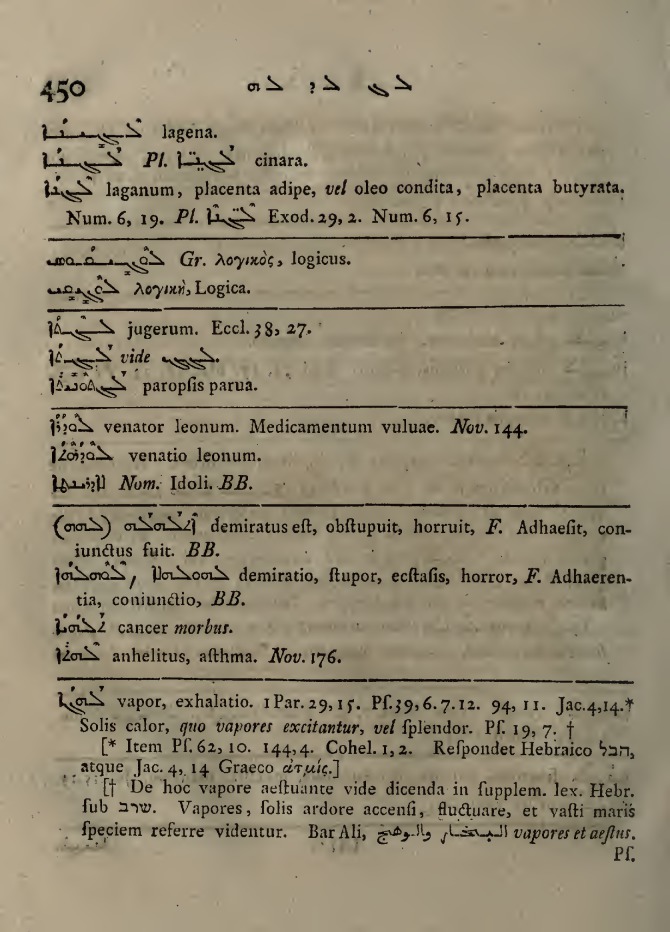 450 ܠܓ ܠܕ ܠܗ
lagena.
Pl. cinara.
laganum, placenta adipe, vel oleo condita, placenta butyrata.
Num. 6, 19. Pl. Exod. 29, 2. Num. 6, 15.
Gr. λογικὸς, logicus.
λογικὴ, Logica.
jugerum. Eccl. 38, 27.
vide
paropſis parua.
venator leonum. Medicamentum vuluae. Nov. 144.
venatio leonum.
Nom. Idoli. BB.
demiratus eſt, obſtupuit, horruit, F. Adhaeſit, con-
iunctus fuit. BB.
demiratio, ſtupor, ecſtaſis, horror, F. Adhaeren-
tia, coniunctio, BB.
cancer morbus.
anhelitus, aſthma. Nov. 176.
vapor, exhalatio. 1 Par. 29, 15. Pſ. 39, 6. 7. 12. 94, 11. Jac. 4, 14.*
Solis calor, quo vapores excitantur, vel ſplendor. Pſ. 19, 7. †
[* Item Pſ. 62, 10. 144, 4. Cohel. 1, 2. Reſpondet Hebraico הבל,
atque Jac. 4, 14 Graeco ἀτμίς.]
[† De hoc vapore aeſtuante vide dicenda in ſupplem. lex. Hebr.
ſub שרב. Vapores, ſolis ardore accenſi, fluctuare, et vaſti maris
ſpeciem referre videntur. Bar Ali, vapores et aeſtus.
Pſ.